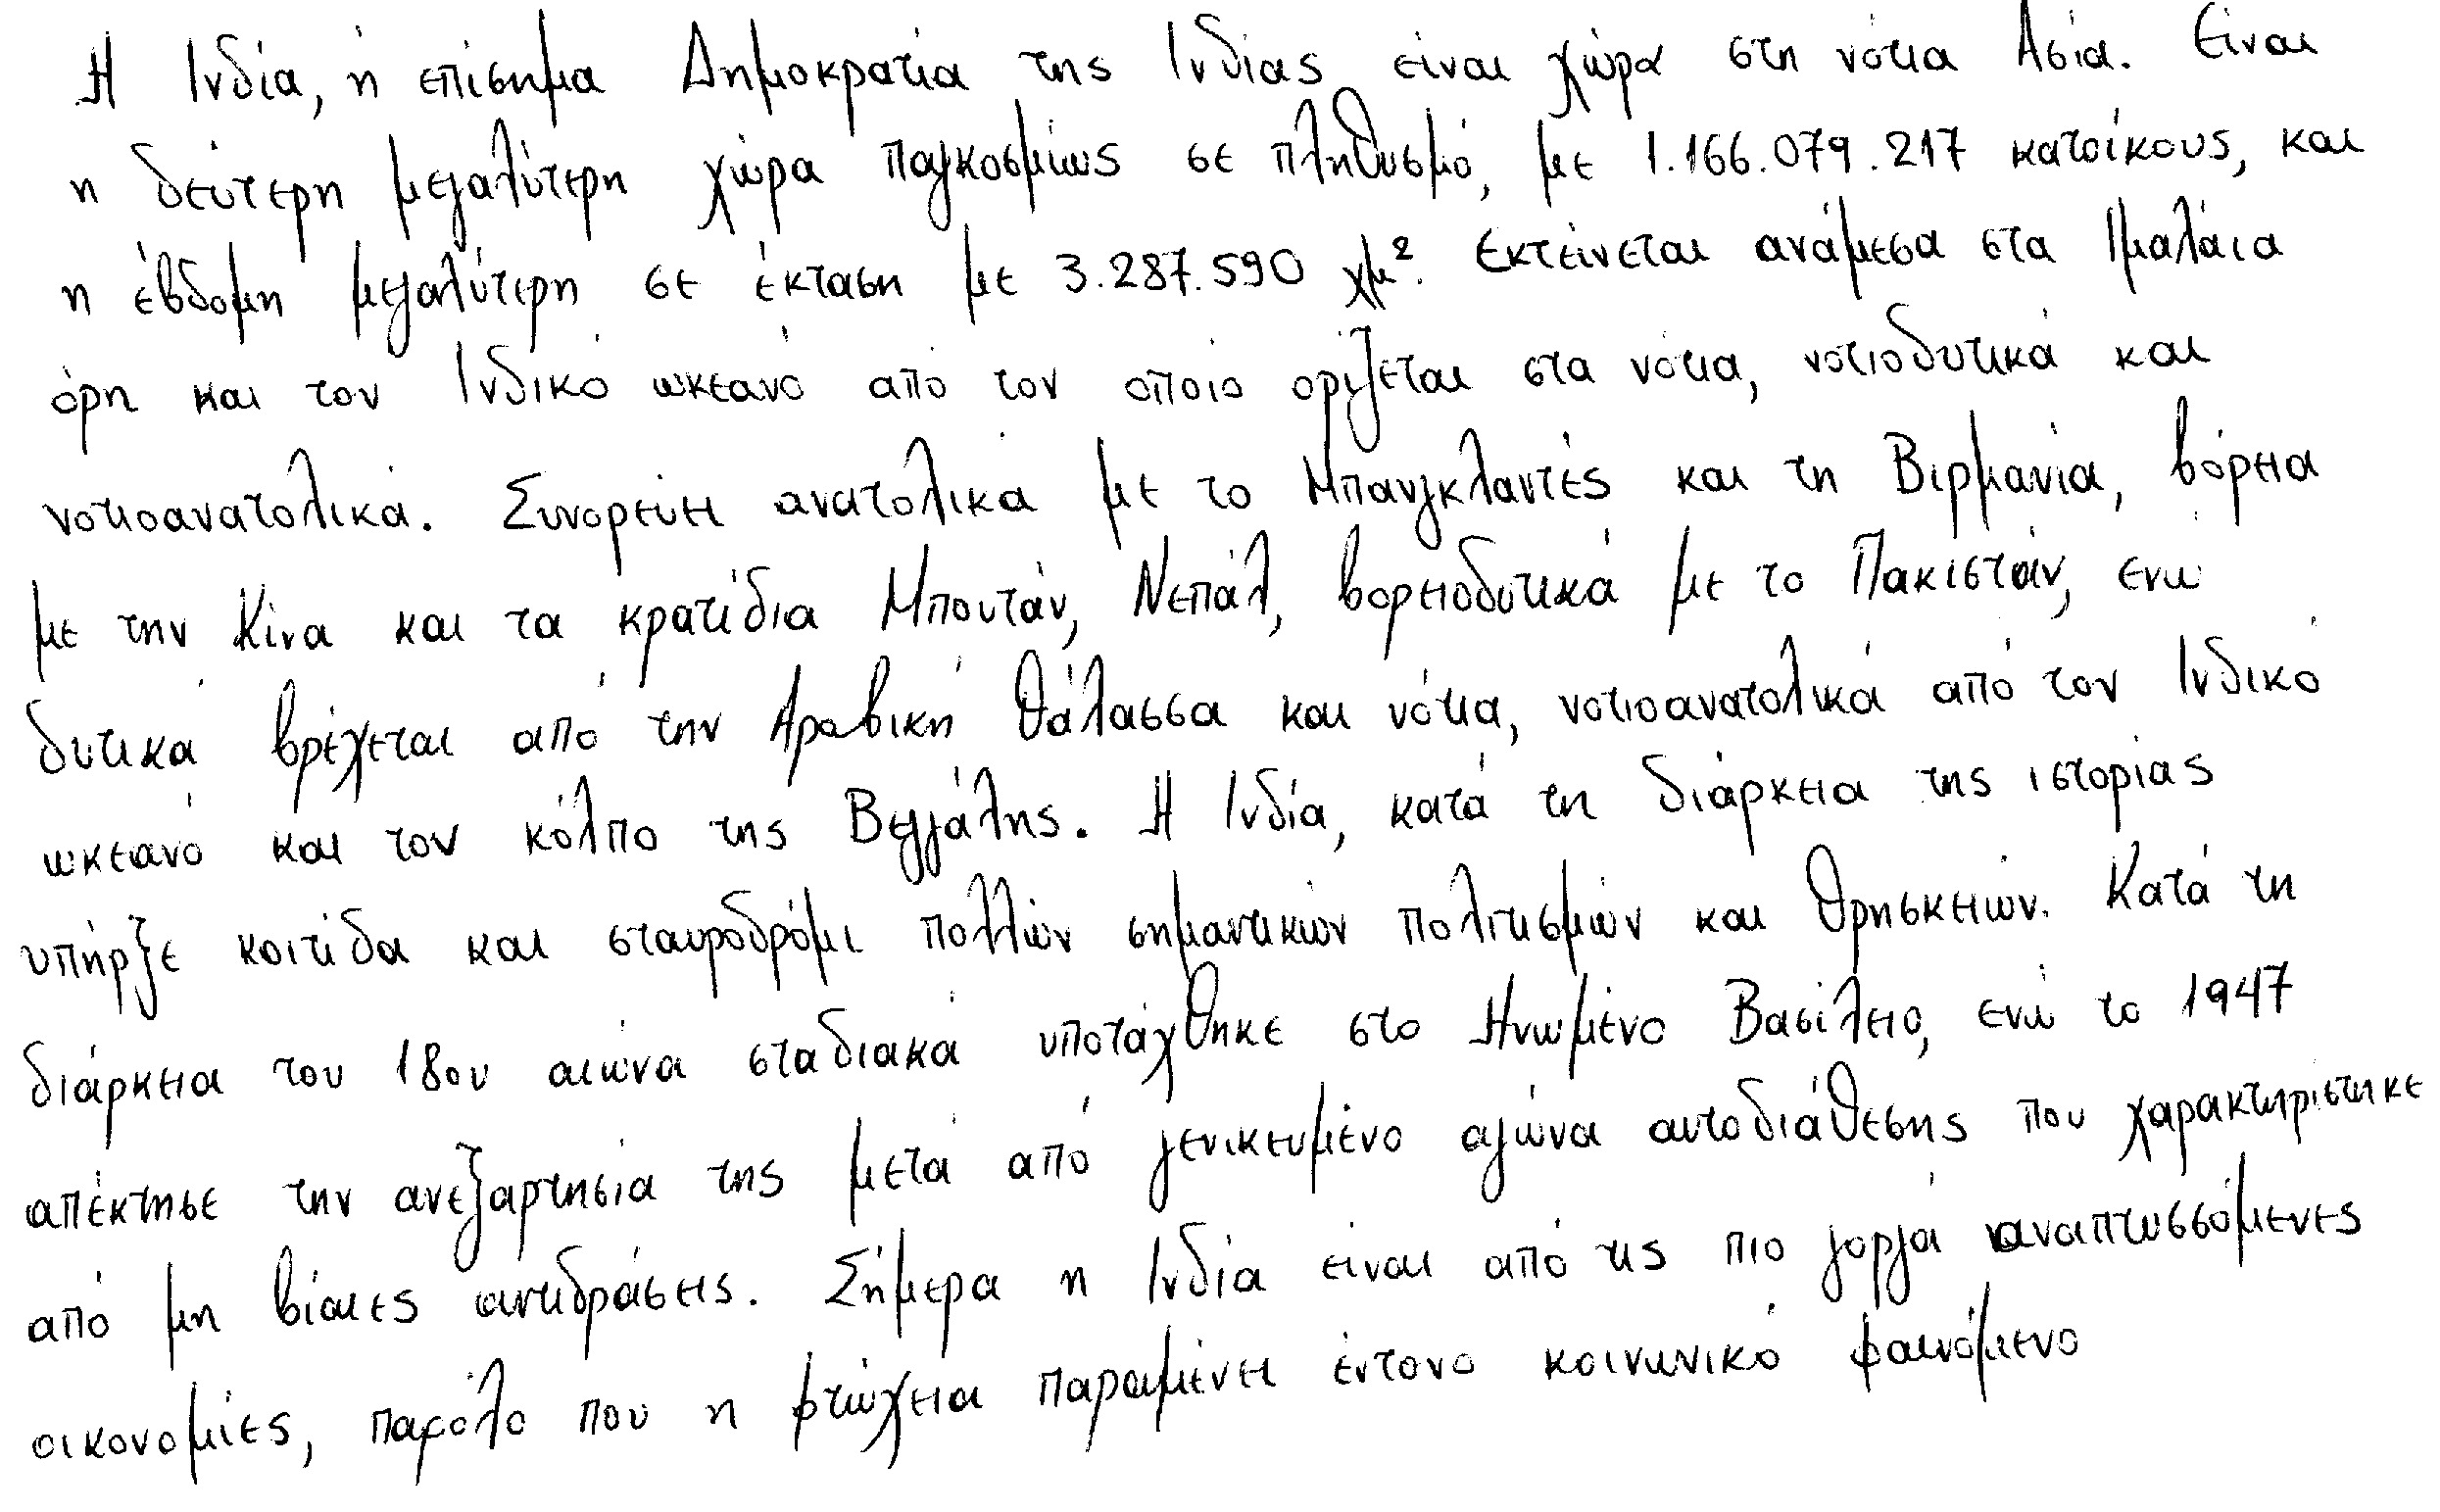 Η Ινδία, ή επίσημα Δημοκρατία της Ινδίας είναι χώρα στη νότια Ασία. Είναι
η δεύτερη μεγαλύτερη χώρα παγκοσμίως σε πληθυσμό, με 1.166.079.217 κατοίκους, και
η έβδομη μεγαλύτερη σε έκταση με 3.287.590 χμ². Εκτείνεται ανάμεσα στα Ιμαλάια
όρη και τον Ινδικό ωκεανό από τον οποίο ορίζεται στα νότια, νοτιοδυτικά και
νοτιοανατολικά. Συνορεύει ανατολικά με το Μπανγκλαντές και τη Βιρμανία, βόρεια
με την Κίνα και τα κρατίδια Μπουτάν, Νεπάλ, βορειοδυτικά με το Πακιστάν, ενώ
δυτικά βρέχεται από την Αραβική θάλασσα και νότια, νοτιοανατολικά από τον Ινδικό
ωκεανό και τον κόλπο της Βεγγάλης. Η Ινδία, κατά τη διάρκεια της ιστορίας
υπήρξε κοιτίδα και σταυροδρόμι πολλών σημαντικών πολιτισμών και θρησκειών. Κατά τη
διάρκεια του 18ου αιώνα σταδιακά υποτάχθηκε στο Ηνωμένο Βασίλειο, ενώ το 1947
απέκτησε την ανεξαρτησία της μετά από γενικευμένο αγώνα αυτοδιάθεσης που χαρακτηρίστηκε
από μη βίαιες αντιδράσεις. Σήμερα η Ινδία είναι από τις πιο γοργά αναπτυσσόμενες
οικονομίες, παρόλο που η φτώχεια παραμένει έντονο κοινωνικό φαινόμενο